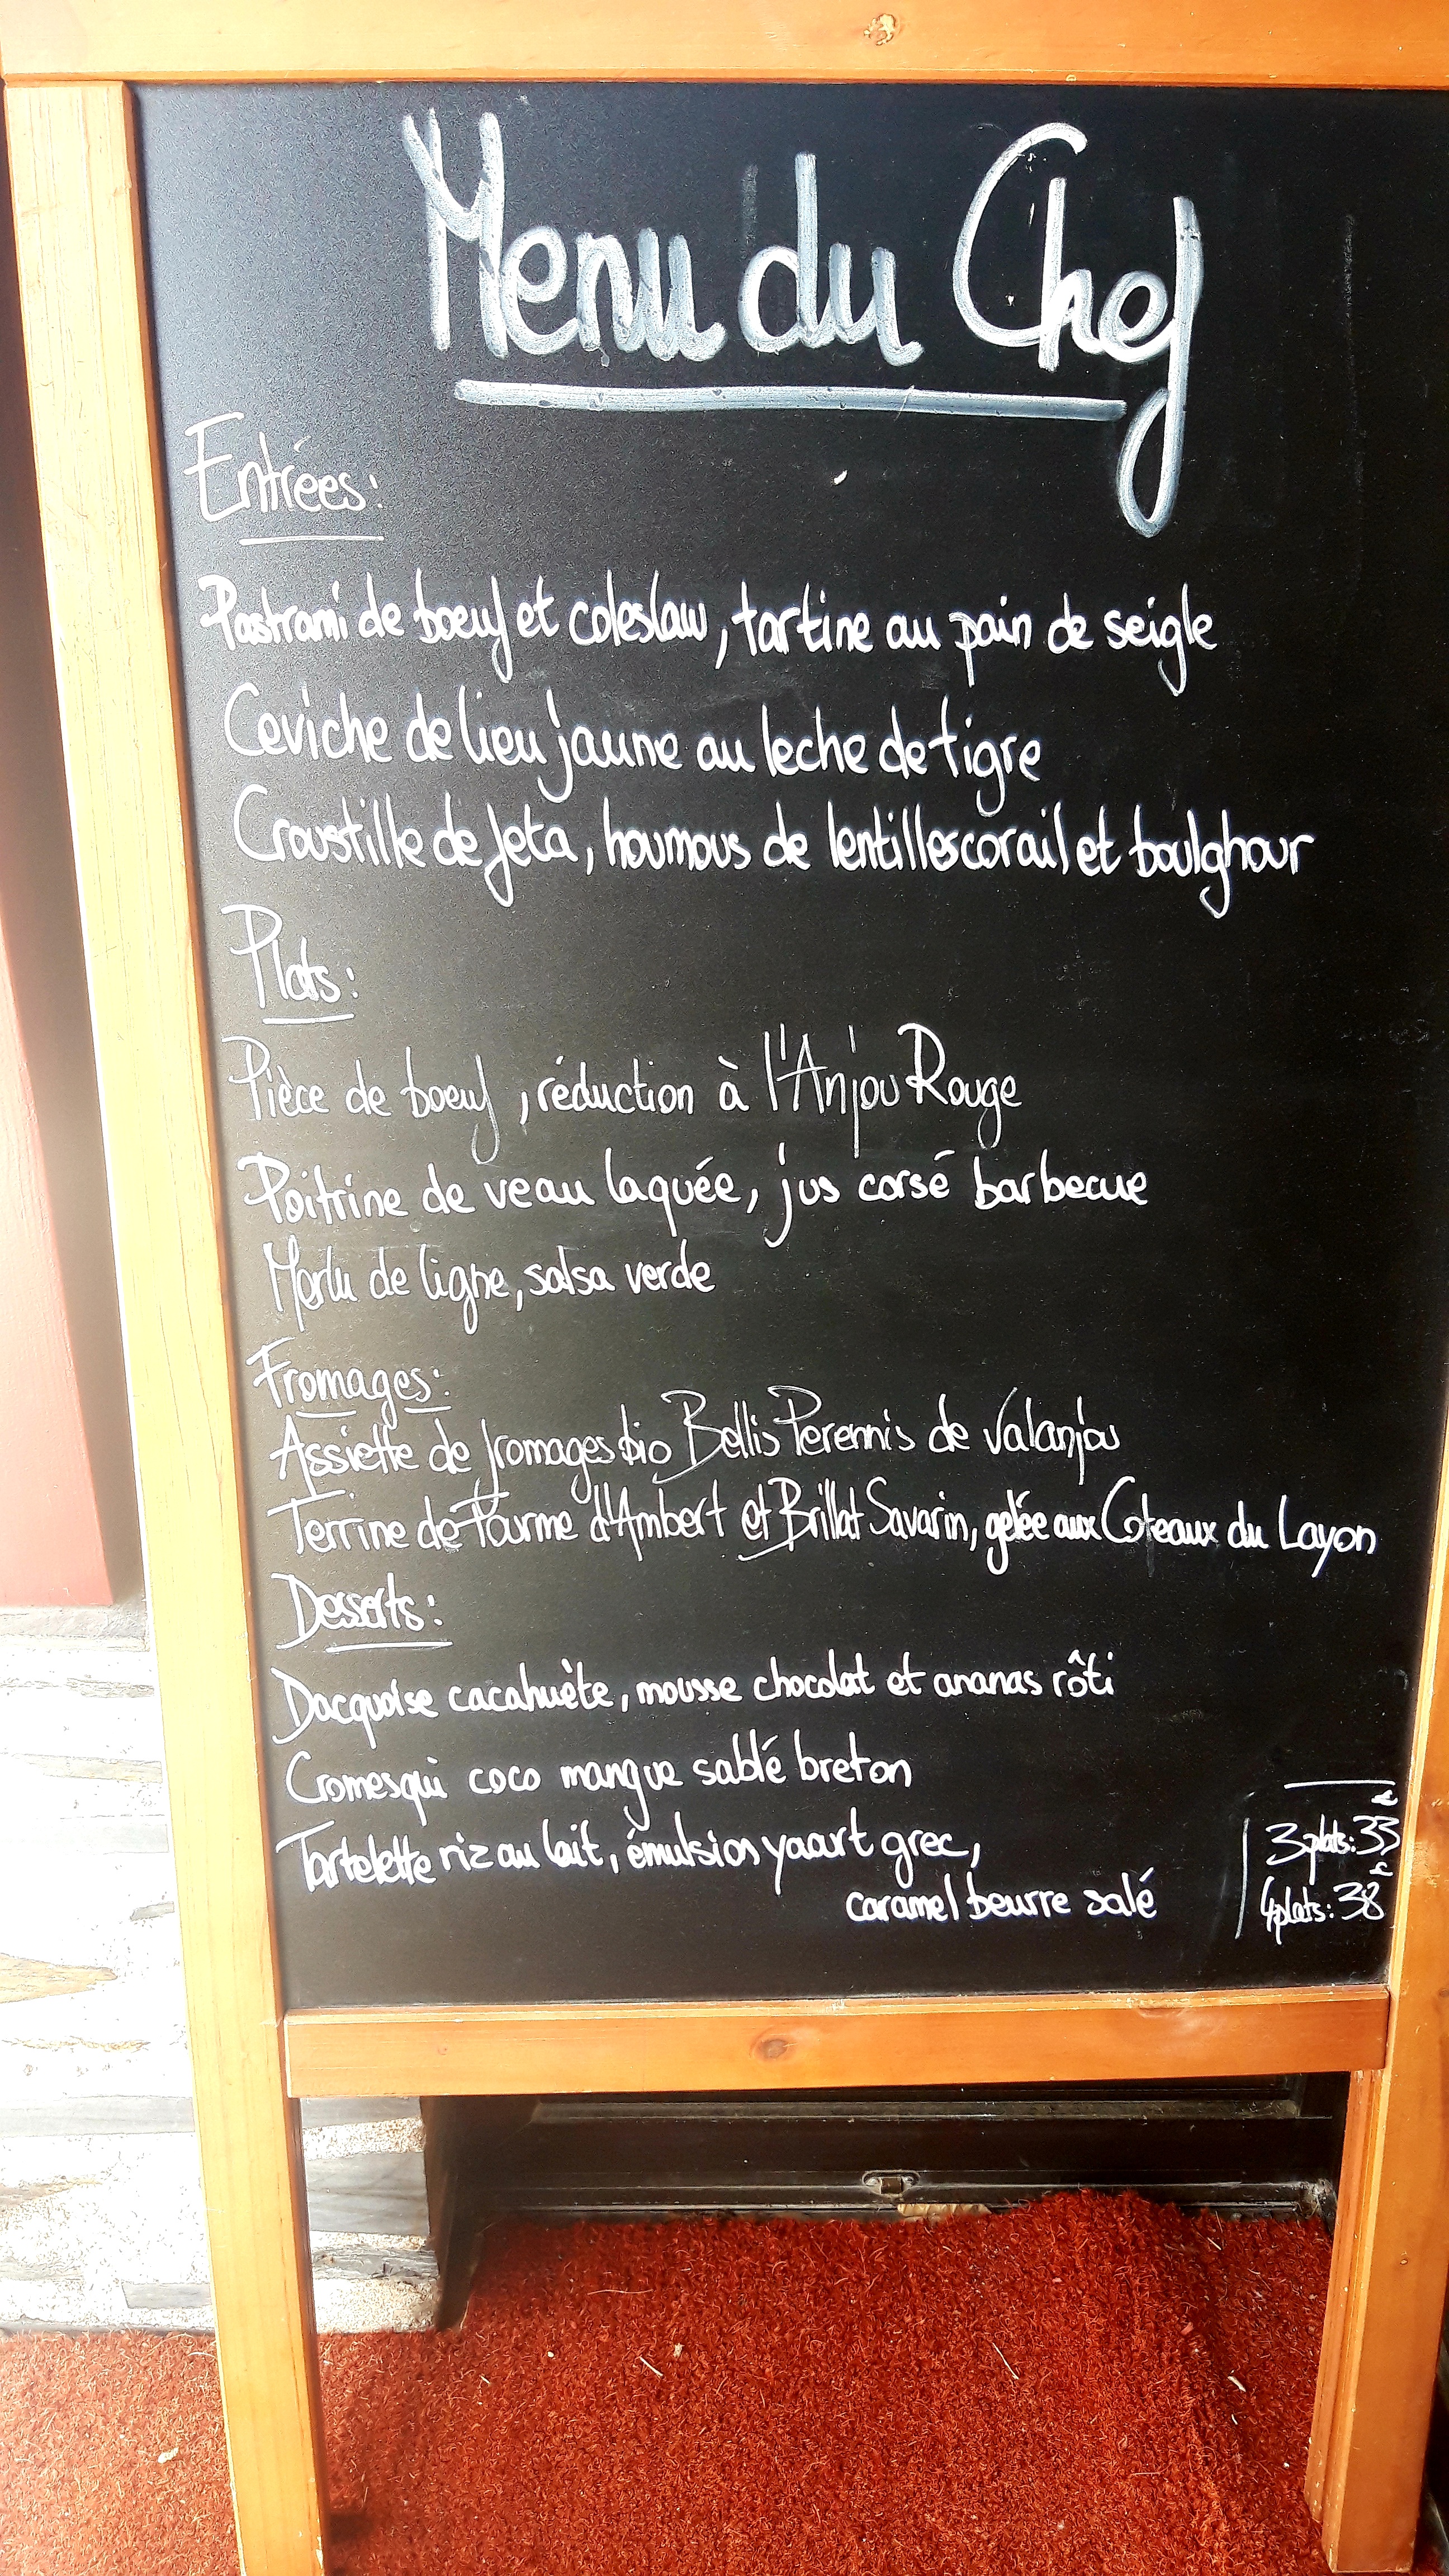 Menu du Chef
Entrées:
Pastrami de boeuf et coleslaw, tartine au pain de seigle
Ceviche de lieu jaune au leche de tigre
Croustille de feta, houmous de lentilles corail et boulghour
Plats:
Pièce de boeuf, réduction à l'Anjou Rouge
Poitrine de veau laquée, jus corsé barbecue
Merlu de ligne, salsa verde
Fromages:
Assiette de fromages bio Bellis Perennis de Valanjou
Terrine de Fourme d'Ambert et Brillat Savarin, gelée aux Coteaux du Layon
Desserts:
Dacquoise cacahuète, mousse chocolat et ananas rôti
Cromesqui coco mangue sablé breton
Tartelette riz au lait, émulsion yaourt grec,
caramel beurre salé
3 plats: 33
4 plats: 38